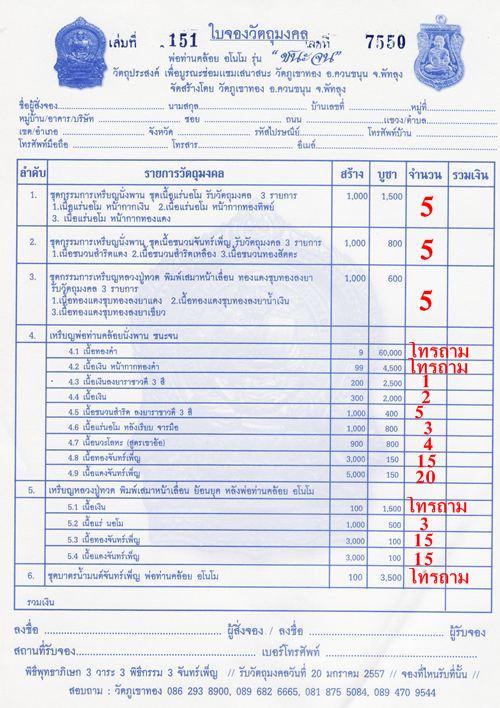 ใบจองวัตถุมงคล
เล่มที่ 151 เลขที่ 7550
พ่อท่านคล้อย อโนโม รุ่น " ชนะจน "
วัตถุประสงค์ เพื่อบูรณะซ่อมแซมเสนาสนะ วัดภูเขาทอง อ.ควนขนุน จ.พัทลุง
จัดสร้างโดย วัดภูเขาทอง อ.ควนขนุน จ.พัทลุง
ชื่อผู้สั่งจอง นามสกุล บ้านเลขที่ หมู่ที่
หมู่บ้าน/อาคาร/บริษัท ซอย ถนน แขวง/ตำบล
เขต/อำเภอ จังหวัด รหัสไปรษณีย์ โทรศัพท์บ้าน
โทรศัพท์มือถือ โทรสาร อีเมล์
ลำดับ รายการวัตถุมงคล สร้าง บูชา จำนวน รวมเงิน
1. ชุดกรรมการเหรียญนั่งพาน ชุดเนื้อแร่นอโม รับวัตถุมงคล 3 รายการ 1,000 1,500 5
1.เนื้อแร่นอโม หน้ากากเงิน 2.เนื้อแร่นอโม หน้ากากทองทิพย์
3. เนื้อแร่นอโม หน้ากากทองแดง
2. ชุดกรรมการเหรียญนั่งพาน ชุดเนื้อชนวนจันทร์เพ็ญ รับวัตถุมงคล 3 รายการ 1,000 800 5
1.เนื้อชนวนสำริดแดง 2.เนื้อชนวนสำริดเหลือง 3.เนื้อชนวนทองสัตตะ
3. ชุดกรรมการเหรียญหลวงปู่ทวด พิมพ์เสมาหน้าเลื่อน ทองแดงชุบทองลงยา 1,000 600 5
รับวัตถุมงคล 3 รายการ
1.เนื้อทองแดงชุบทองลงยาแดง 2.เนื้อทองแดงชุบทองลงยาน้ำเงิน
3.เนื้อทองแดงชุบทองลงยาเขียว
4. เหรียญพ่อท่านคล้อยนั่งพาน ชนะจน
4.1 เนื้อทองคำ 9 60,000 โทรถาม
4.2 เนื้อเงิน หน้ากากทองคำ 99 4,500 โทรถาม
4.3 เนื้อเงินลงยาราชาวดี 3 สี 200 2,500 1
4.4 เนื้อเงิน 300 2,000 2
4.5 เนื้อชนวนสำริด ลงยาราชาวดี 3 สี 1,000 400 5
4.6 เนื้อแร่นอโม หลังเรียบ จารมือ 1,000 800 3
4.7 เนื้อนวะโลหะ (สูตรเขาอ้อ) 900 800 4
4.8 เนื้อทองจันทร์เพ็ญ 3,000 150 15
4.9 เนื้อแดงจันทร์เพ็ญ 5,000 150 20
5. เหรียญหลวงปู่ทวด พิมพ์เสมาหน้าเลื่อน ย้อนยุค หลังพ่อท่านคล้อย อโนโม
5.1 เนื้อเงิน 100 1,500 โทรถาม
5.2 เนื้อแร่ นอโม 1,000 500 3
5.3 เนื้อทองจันทร์เพ็ญ 3,000 100 15
5.4 เนื้อแดงจันทร์เพ็ญ 3,000 100 15
6. ชุดบาตรน้ำมนต์จันทร์เพ็ญ พ่อท่านคล้อย อโนโม 100 3,500 โทรถาม
รวมเงิน
ลงชื่อ ผู้สั่งจอง / ลงชื่อ ผู้รับจอง
สถานที่รับจอง เบอร์โทรศัพท์
พิธีพุทธาภิเษก 3 วาระ 3 พิธีกรรม 3 จันทร์เพ็ญ // รับวัตถุมงคลวันที่ 20 มกราคม 2557 // จองที่ไหนรับที่นั้น //
สอบถาม : วัดภูเขาทอง 086 293 8900, 089 682 6665, 081 875 5084, 089 470 9544